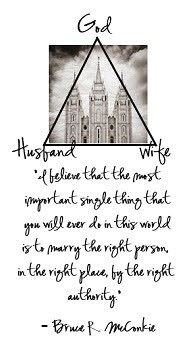 God
Husband Wife
"I believe that the most
important single thing that
you will ever do in this world
is to marry the right person,
in the right place, by the right
authority."
- Bruce R. McConkie